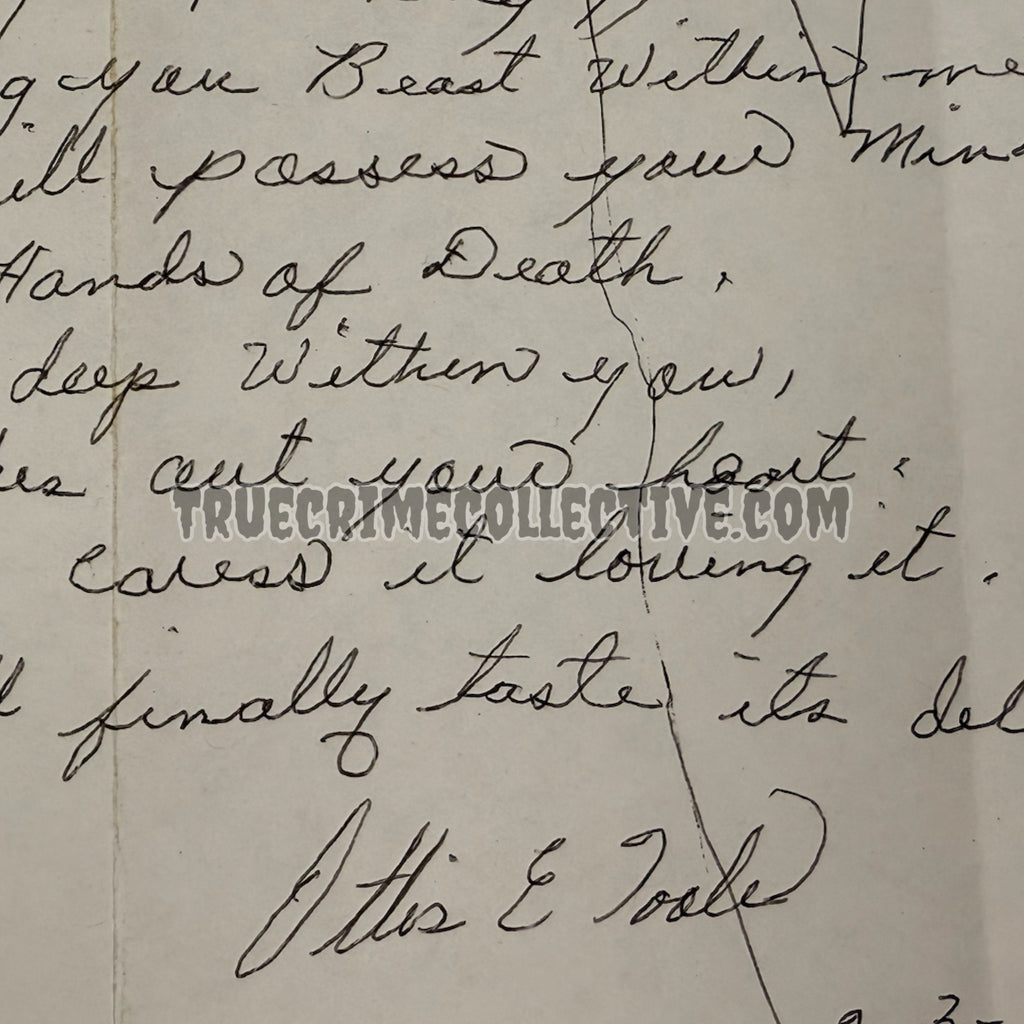 g you Beast Within me
ill possess your Mind
Hands of Death.
deep Within you,
out your heart.
TRUECRIMECOLLECTIVE.COM
caress it loving it.
finally taste its del
Ottis E Toole